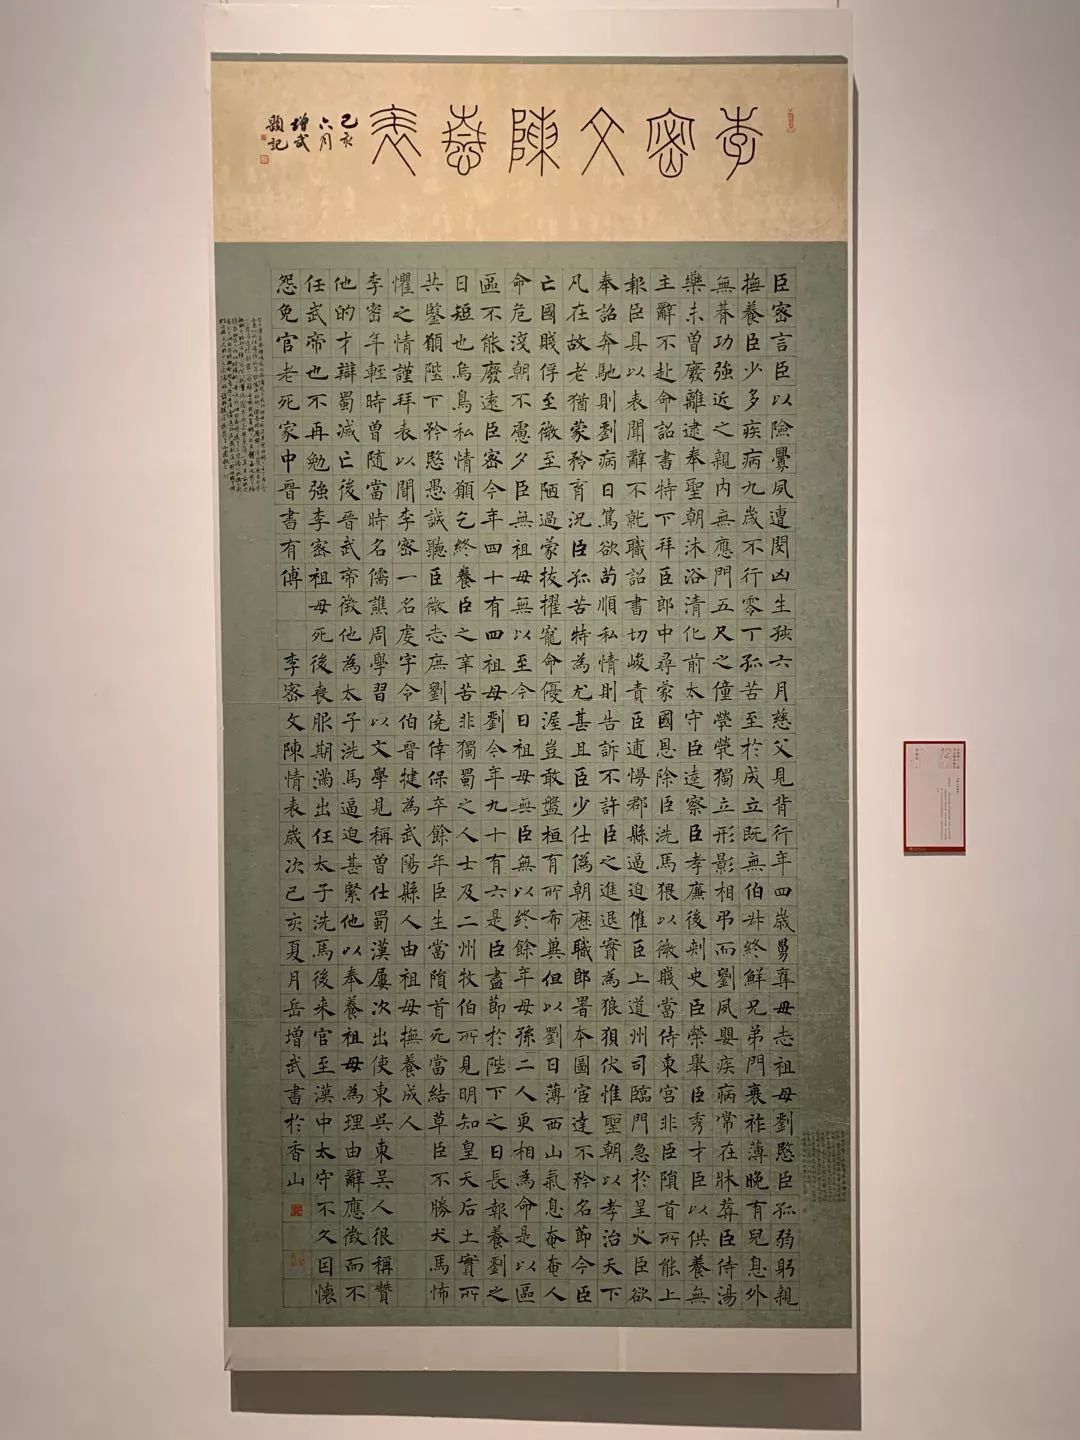 李密文陳情表
己亥
六月
增武
題記
臣密言臣以險釁夙遭閔凶生孩六月慈父見背行年四歲舅奪母志祖母劉愍臣孤弱躬親
撫養臣少多疾病九歲不行零丁孤苦至於成立既無伯叔終鮮兄弟門衰祚薄晚有兒息外
無朞功強近之親內無應門五尺之僮煢煢獨立形影相弔而劉夙嬰疾病常在牀蓐臣侍湯
藥未曾廢離逮奉聖朝沐浴清化前太守臣逵察臣孝廉後刺史臣榮舉臣秀才臣以供養無
主辭不赴命詔書特下拜臣郎中尋蒙國恩除臣洗馬猥以微賤當侍東宮非臣隕首所能上
報臣具以表聞辭不就職詔書切峻責臣逋慢郡縣逼迫催臣上道州司臨門急於星火臣欲
奉詔奔馳則劉病日篤欲苟順私情則告訴不許臣之進退實為狼狽伏惟聖朝以孝治天下
凡在故老猶蒙矜育況臣孤苦特為尤甚且臣少仕偽朝歷職郎署本圖宦達不矜名節今臣
亡國賤俘至微至陋過蒙拔擢寵命優渥豈敢盤桓有所希冀但以劉日薄西山氣息奄奄人
命危淺朝不慮夕臣無祖母無以至今日祖母無臣無以終餘年母孫二人更相為命是以區
區不能廢遠臣密今年四十有四祖母劉今年九十有六是臣盡節於陛下之日長報養劉之
日短也烏鳥私情願乞終養臣之辛苦非獨蜀之人士及二州牧伯所見明知皇天后土實所
共鑒願陛下矜愍愚誠聽臣微志庶劉僥倖保卒餘年臣生當隕首死當結草臣不勝犬馬怖
懼之情謹拜表以聞李密一名虔字令伯晉犍為武陽縣人由祖母撫養成人
李密年輕時曾隨當時名儒譙周學習以文學見稱曾仕蜀漢屢次出使東吳東吳人很稱贊
他的才辯蜀滅亡後晉武帝徵他為太子洗馬逼迫甚緊他以奉養祖母為理由辭應徵而不
任武帝也不再勉強李密祖母死後喪服期滿出任太子洗馬後来官至漢中太守不久因懷
怨免官老死家中晉書有傅 李密文陳情表歲次己亥夏月岳增武書於香山
12